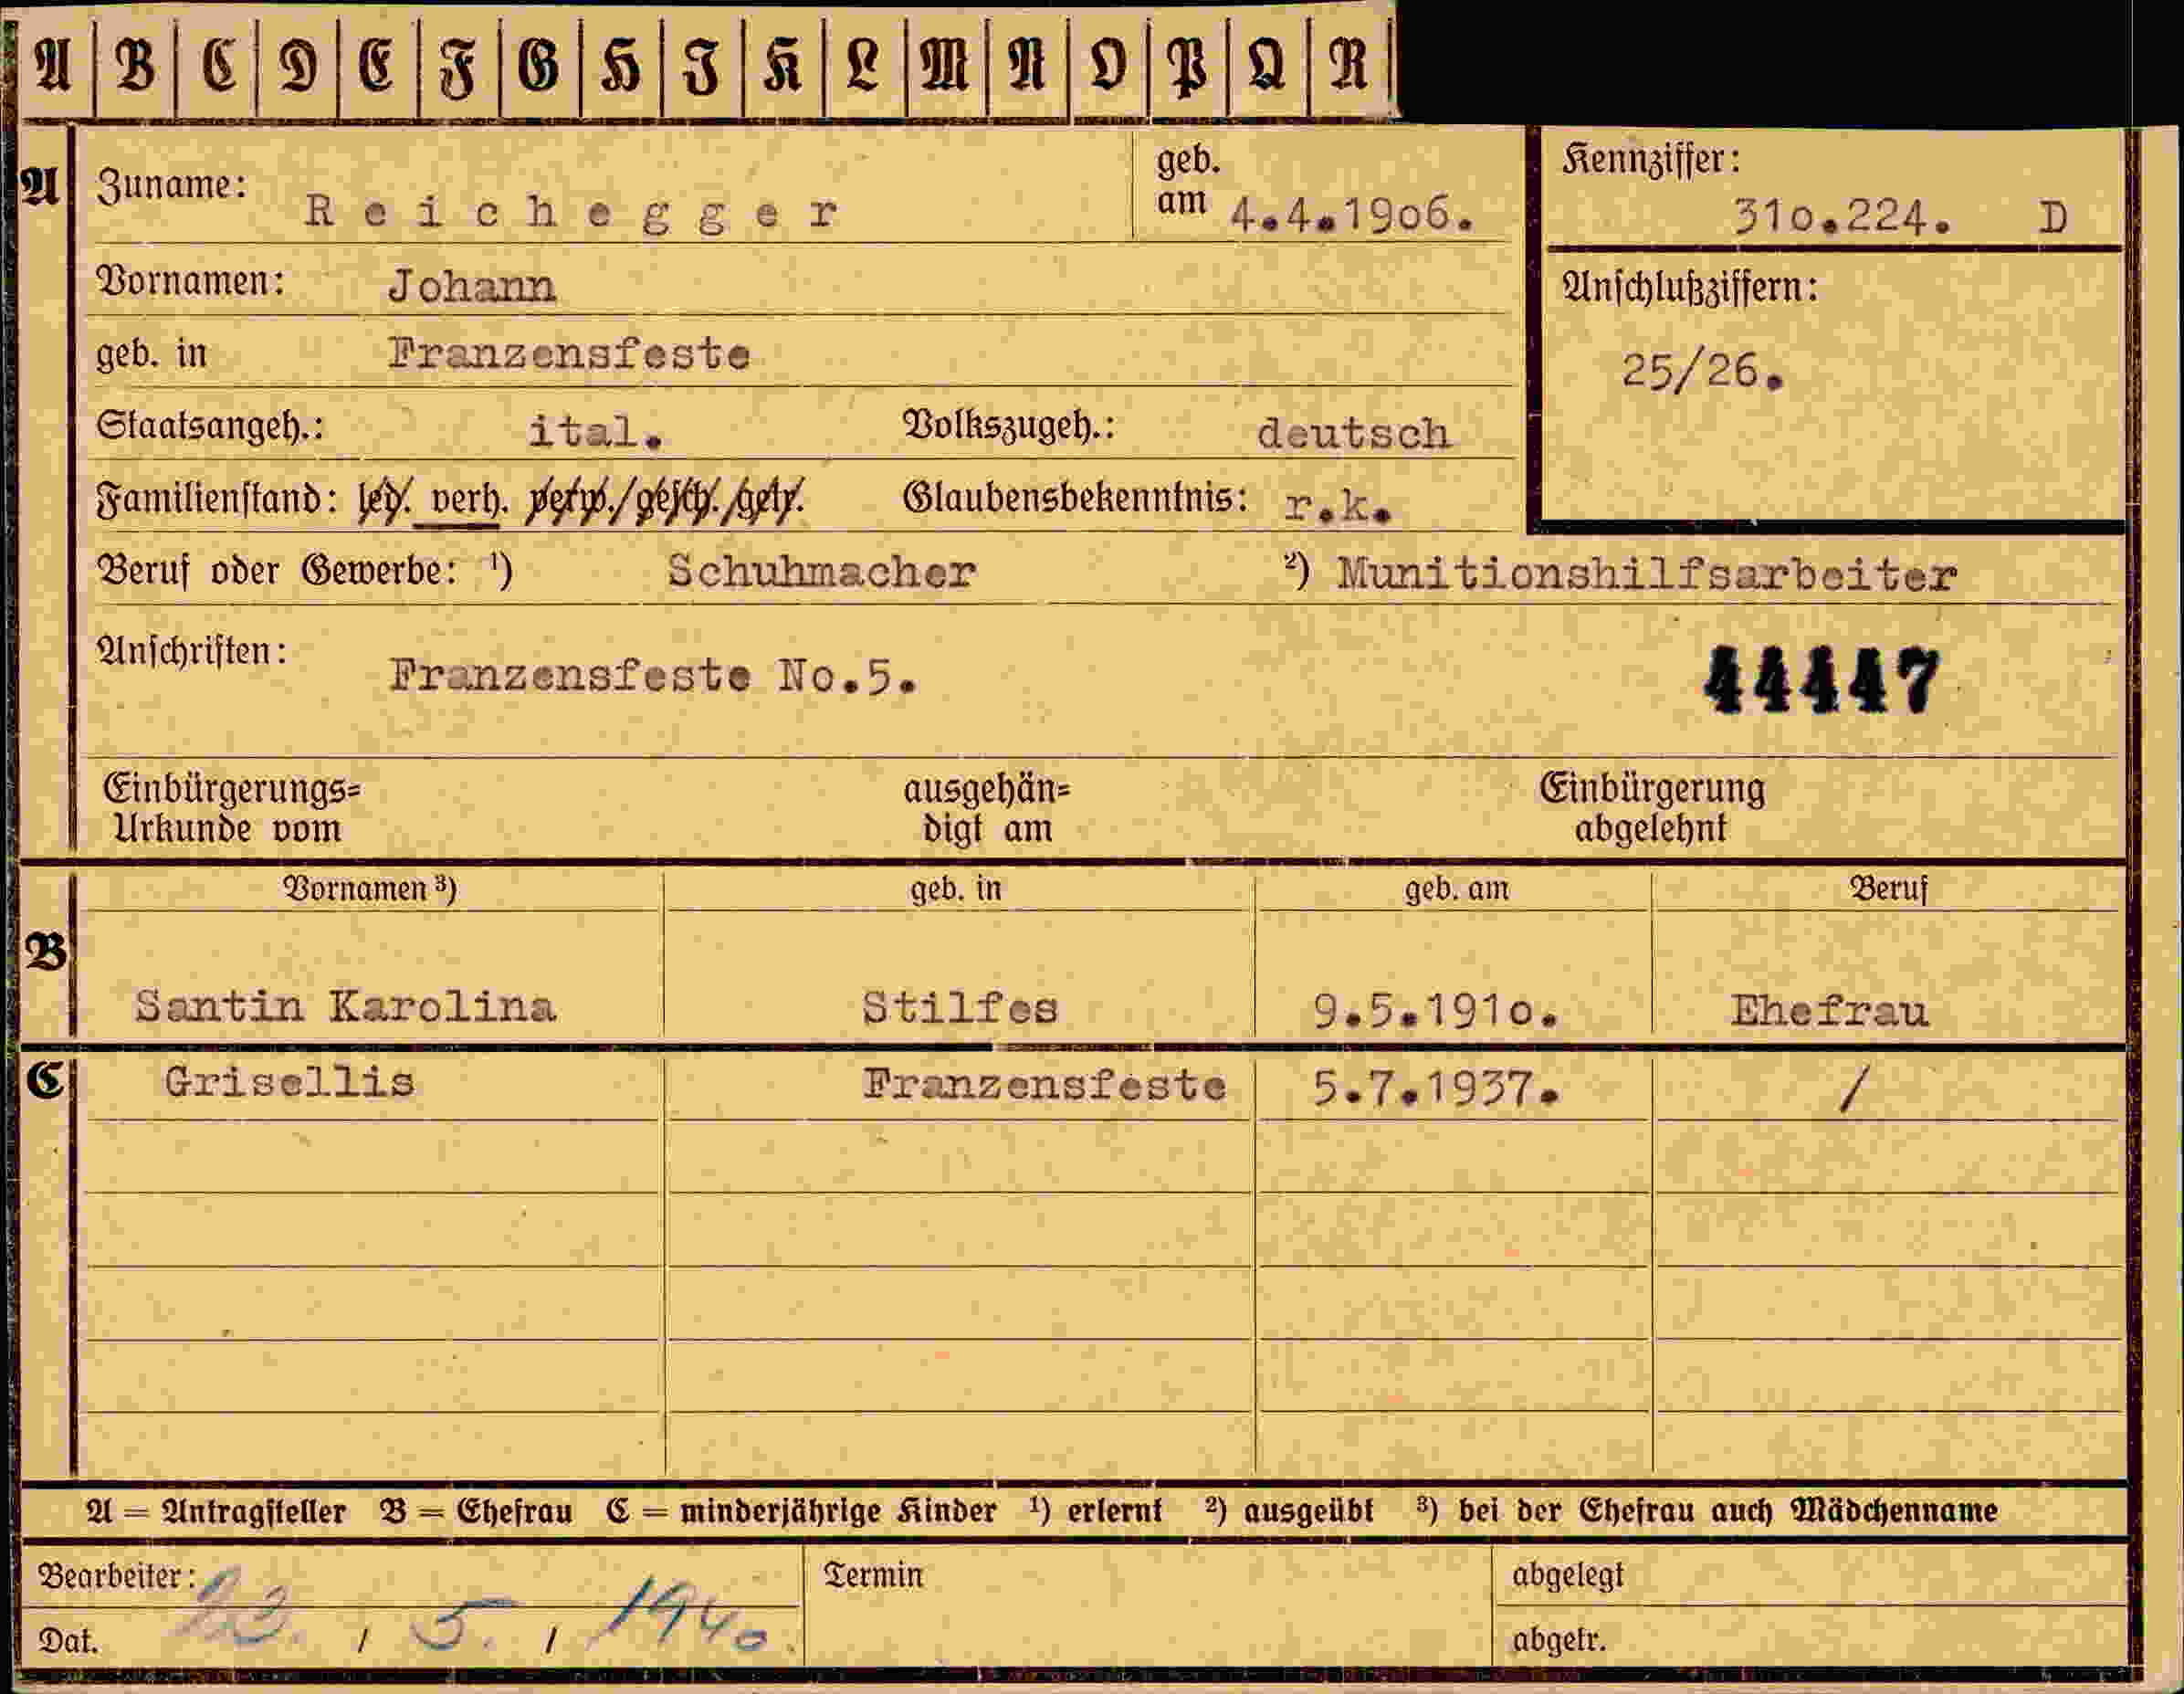 A B C D E F G H I K L M N O P Q R
A Zuname: Reichegger geb. am 4.4.19o6. Kennziffer: 31o.224. D
Vornamen: Johann Anschlußziffern:
geb. in Franzensfeste 25/26.
Staatsangeh.: ital. Volkszugeh.: deutsch
Familienstand: led. verh. verw./gesch./getr. Glaubensbekenntnis: r.k.
Beruf oder Gewerbe: ¹) Schuhmacher ²) Munitionshilfsarbeiter
Anschriften: Franzensfeste No.5. 44447
Einbürgerungs= ausgehän= Einbürgerung
Urkunde vom digt am abgelehnt
Vornamen ³) geb. in geb. am Beruf
B Santin Karolina Stilfes 9.5.191o. Ehefrau
C Grisellis Franzensfeste 5.7.1937. /
A = Antragsteller B = Ehefrau C = minderjährige Kinder ¹) erlernt ²) ausgeübt ³) bei der Ehefrau auch Mädchenname
Bearbeiter: Termin abgelegt
Dat. 23. / 5. / 1940. abgetr.